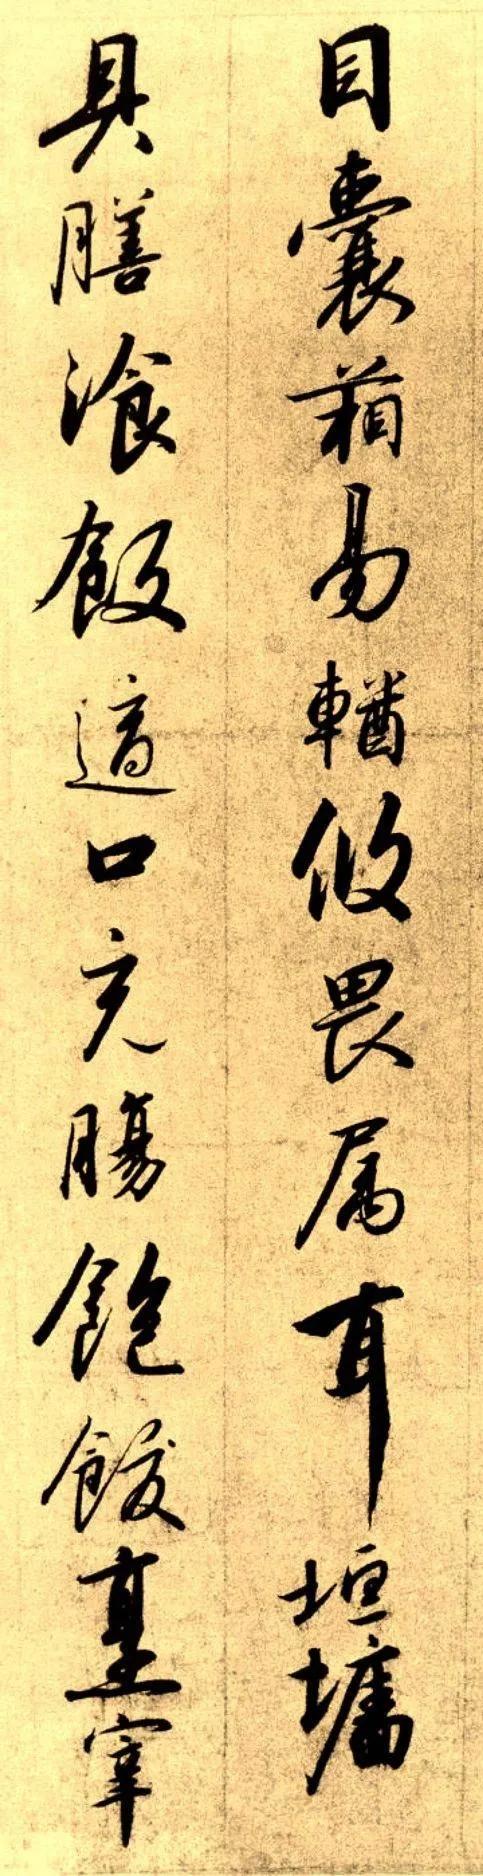 目囊箱易輶攸畏属耳垣墻
具膳飡飯適口充腸飽飫烹宰